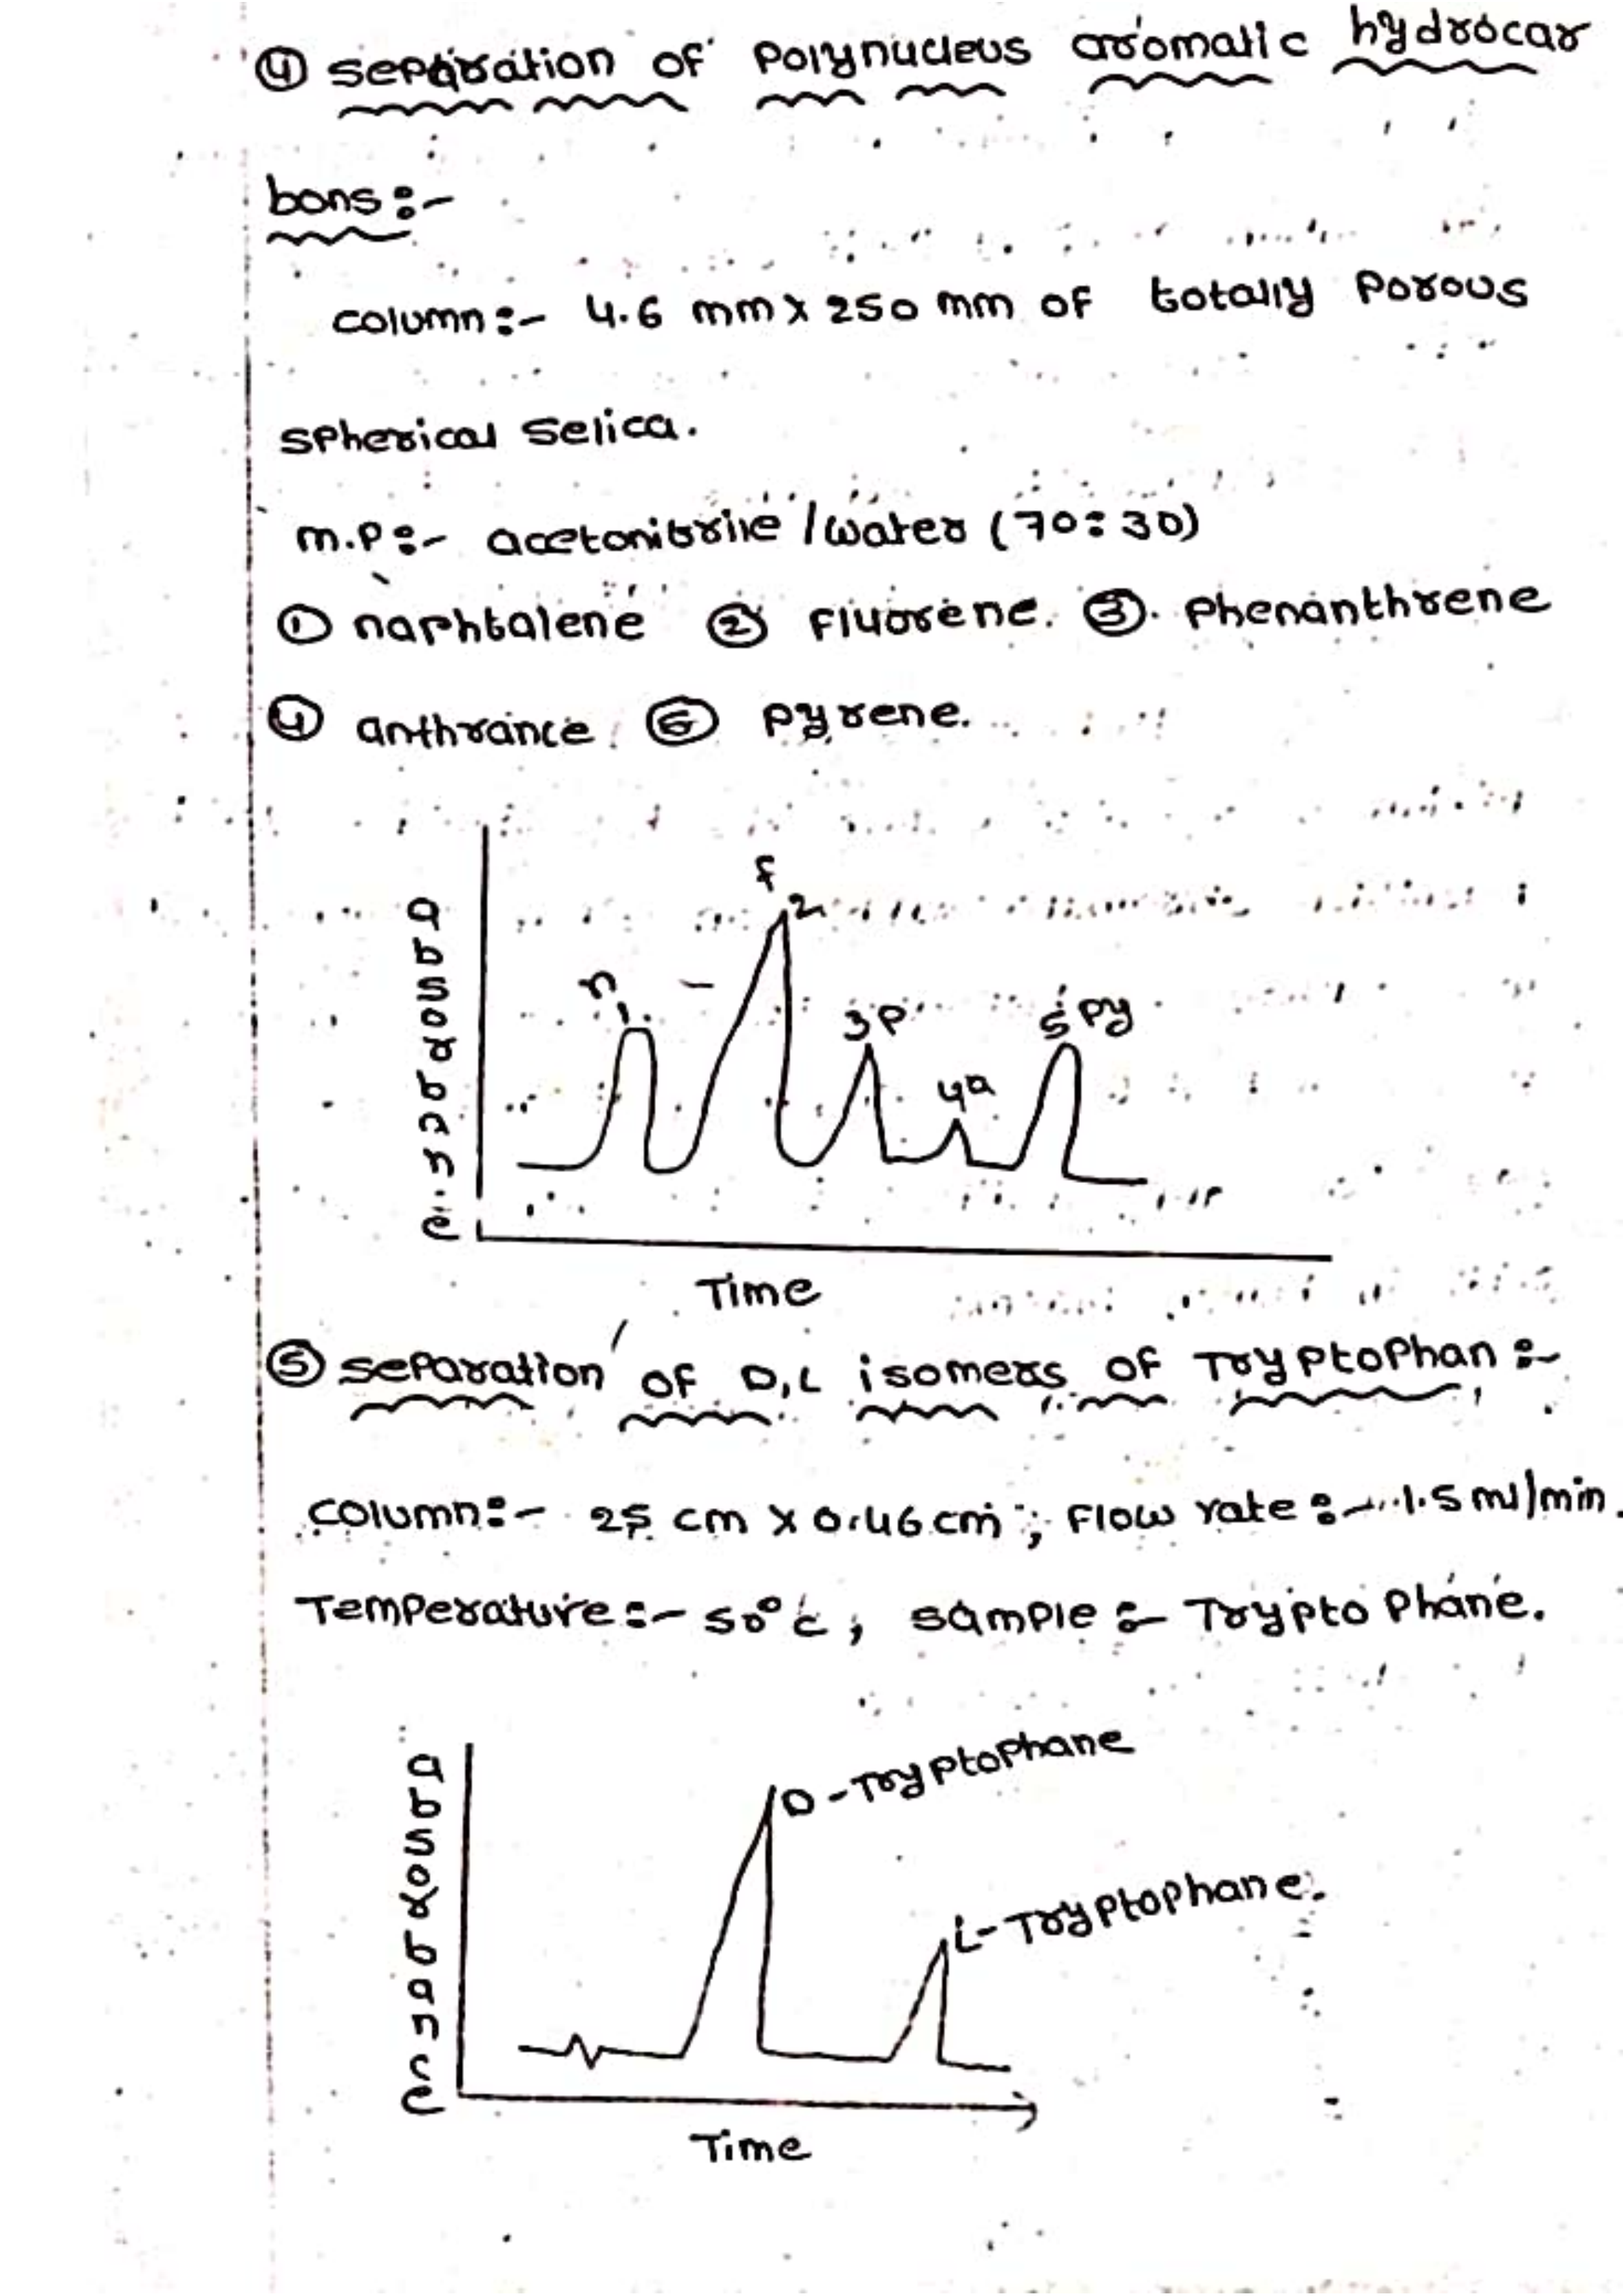 ④ separation of polynucleus aromatic hydrocar
bons :-
column :- 4.6 mm x 250 mm of totally porous
spherical selica.
m.p :- acetonitrile / water (70 : 30)
① naphtalene ② fluorene. ③. phenanthrene
④ anthrance ⑤ pyrene.
f
2
n
1
3 p
5 py
4 a
absorbance
Time
⑤ separation of D,L isomers of Tryptophan :-
column :- 25 cm x 0.46 cm ; flow rate :- 1.5 ml/min.
Temperature :- 50°c ; sample :- Tryptophane.
D-Tryptophane
L-Tryptophane.
absorbance
Time